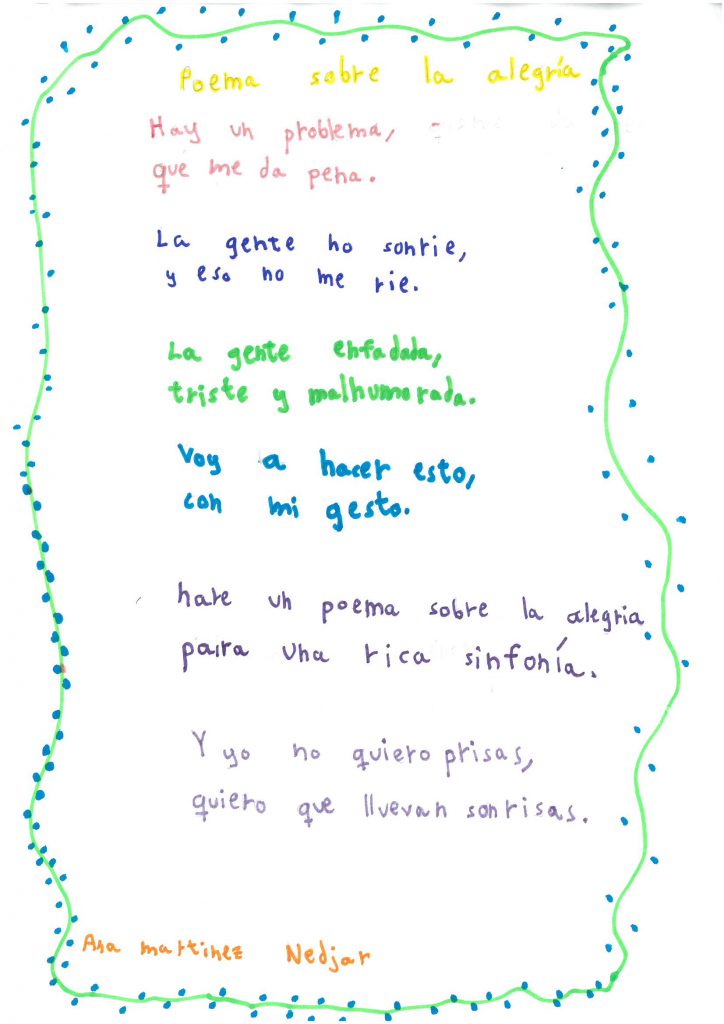 Poema sobre la alegría
Hay un problema,
que me da pena.
La gente no sonrie,
y eso no me rie.
La gente enfadada,
triste y malhumorada.
Voy a hacer esto,
con mi gesto.
hare un poema sobre la alegria
para una rica sinfonía.
Y yo no quiero prisas,
quiero que lluevan sonrisas.
Ana martinez Nedjar